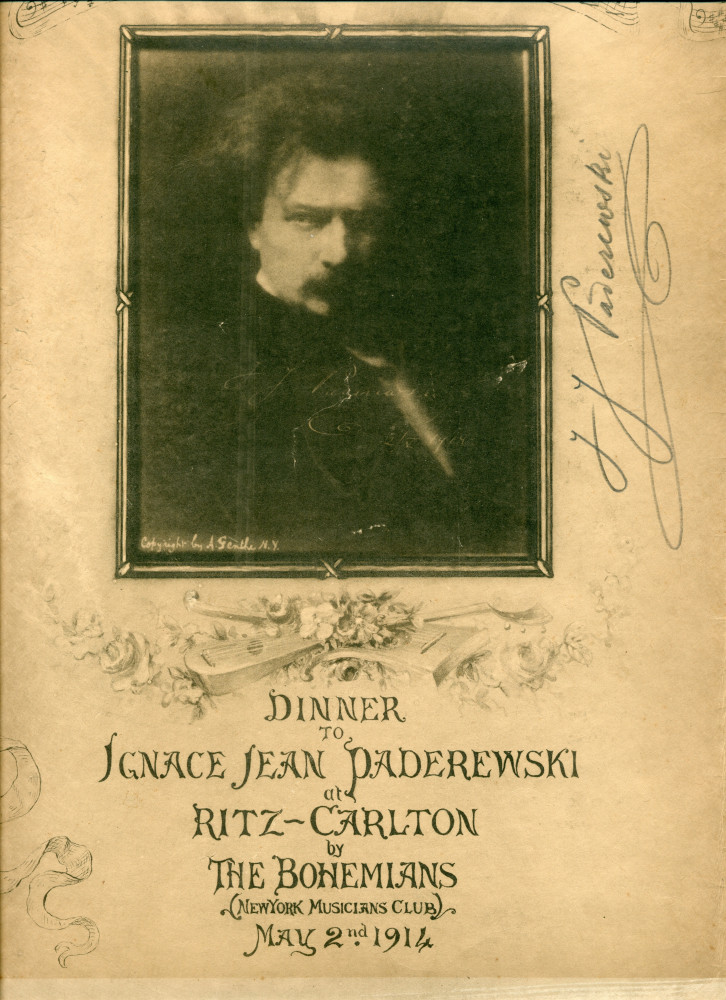 Copyright by A Genthe N.Y.
I J Paderewski
DINNER
TO
IGNACE JEAN PADEREWSKI
at
RITZ-CARLTON
by
THE BOHEMIANS
(NEW YORK MUSICIANS CLUB)
MAY 2nd 1914